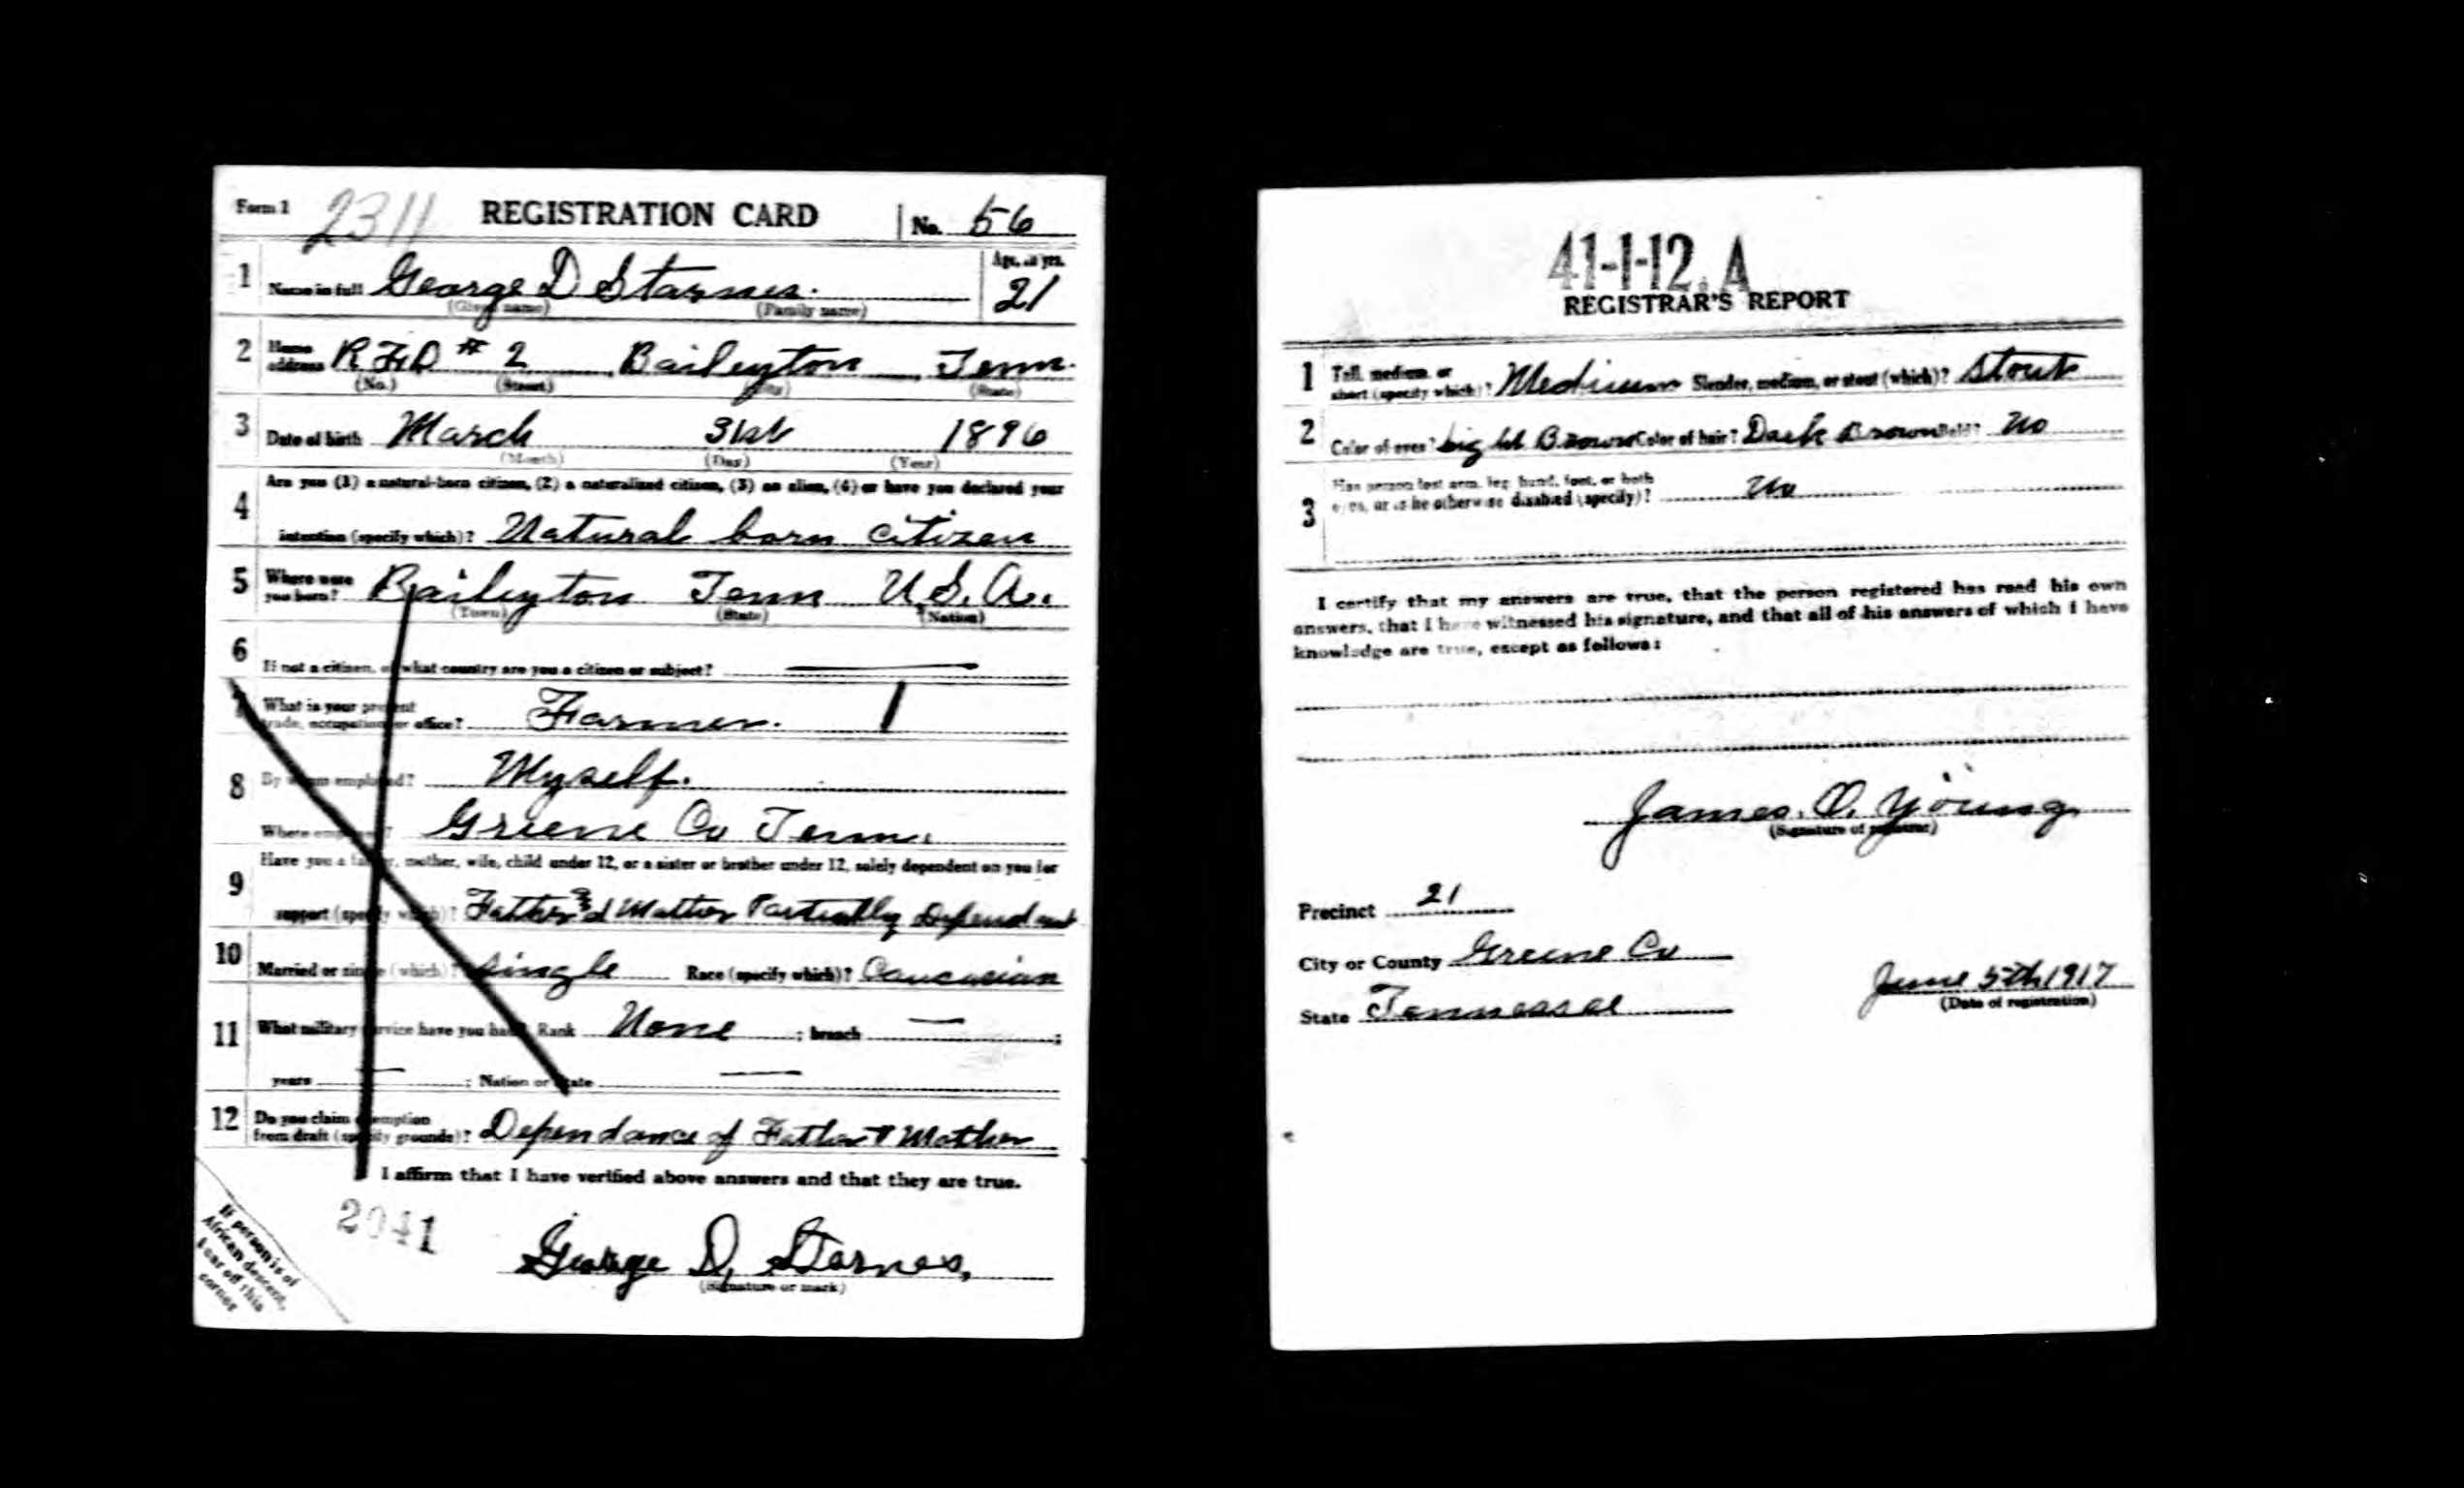 Form 1 2311 REGISTRATION CARD No. 56
1 Name in full George D Starnes. Age, in yrs. 21
(Given name) (Family name)
2 Home address R.F.D # 2 Baileyton, Tenn.
(No.) (Street) (City) (State)
3 Date of birth March 31st 1896
(Month) (Day) (Year)
Are you (1) a natural-born citizen, (2) a naturalized citizen, (3) an alien, (4) or have you declared your
4 intention (specify which)? Natural born citizen
5 Where were you born? Baileyton Tenn U.S.A.
(Town) (State) (Nation)
6 If not a citizen, of what country are you a citizen or subject?
7 What is your present trade, occupation or office? Farmer. 1
8 By whom employed? Myself.
Where employed? Greene Co Tenn.
Have you a father, mother, wife, child under 12, or a sister or brother under 12, solely dependent on you for
9 support (specify which)? Father & Mother Partially Dependent
10 Married or single (which)? Single Race (specify which)? Caucasian
11 What military service have you had? Rank None ; branch — ;
years — ; Nation or State —
12 Do you claim exemption from draft (specify grounds)? Dependance of Father & Mother
I affirm that I have verified above answers and that they are true.
2041
George D. Starnes.
(Signature or mark)
If person is of
African descent,
tear off this
corner
41-1-12. A
REGISTRAR'S REPORT
1 Tall, medium, or short (specify which)? Medium Slender, medium, or stout (which)? Stout
2 Color of eyes? Brown Color of hair? Dark Brown Bald? No
3 Has person lost arm, leg, hand, foot, or both
eyes, or is he otherwise disabled (specify)? No
I certify that my answers are true, that the person registered has read his own
answers, that I have witnessed his signature, and that all of his answers of which I have
knowledge are true, except as follows:
James. O. Young
(Signature of registrar)
Precinct 21
City or County Greene Co
State Tennessee
June 5th 1917
(Date of registration)